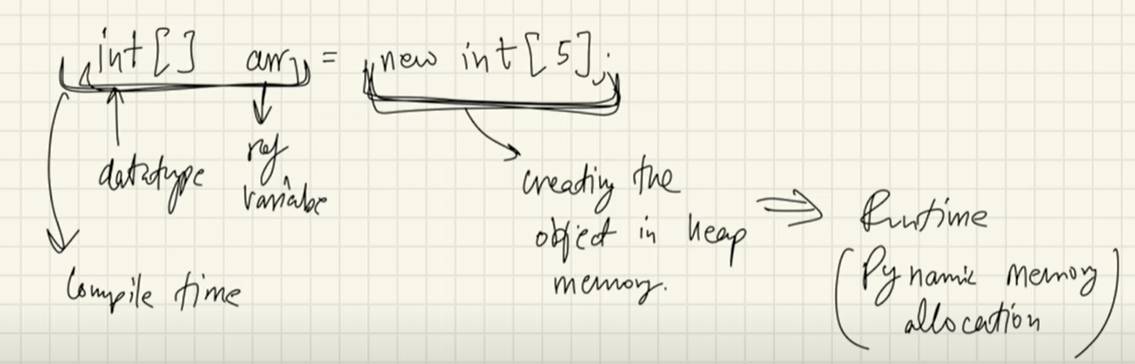 int[] arr = new int[5];
datatype
ref
variable
Compile time
creating the
object in heap
memory.
Runtime
(Dynamic memory
allocation)